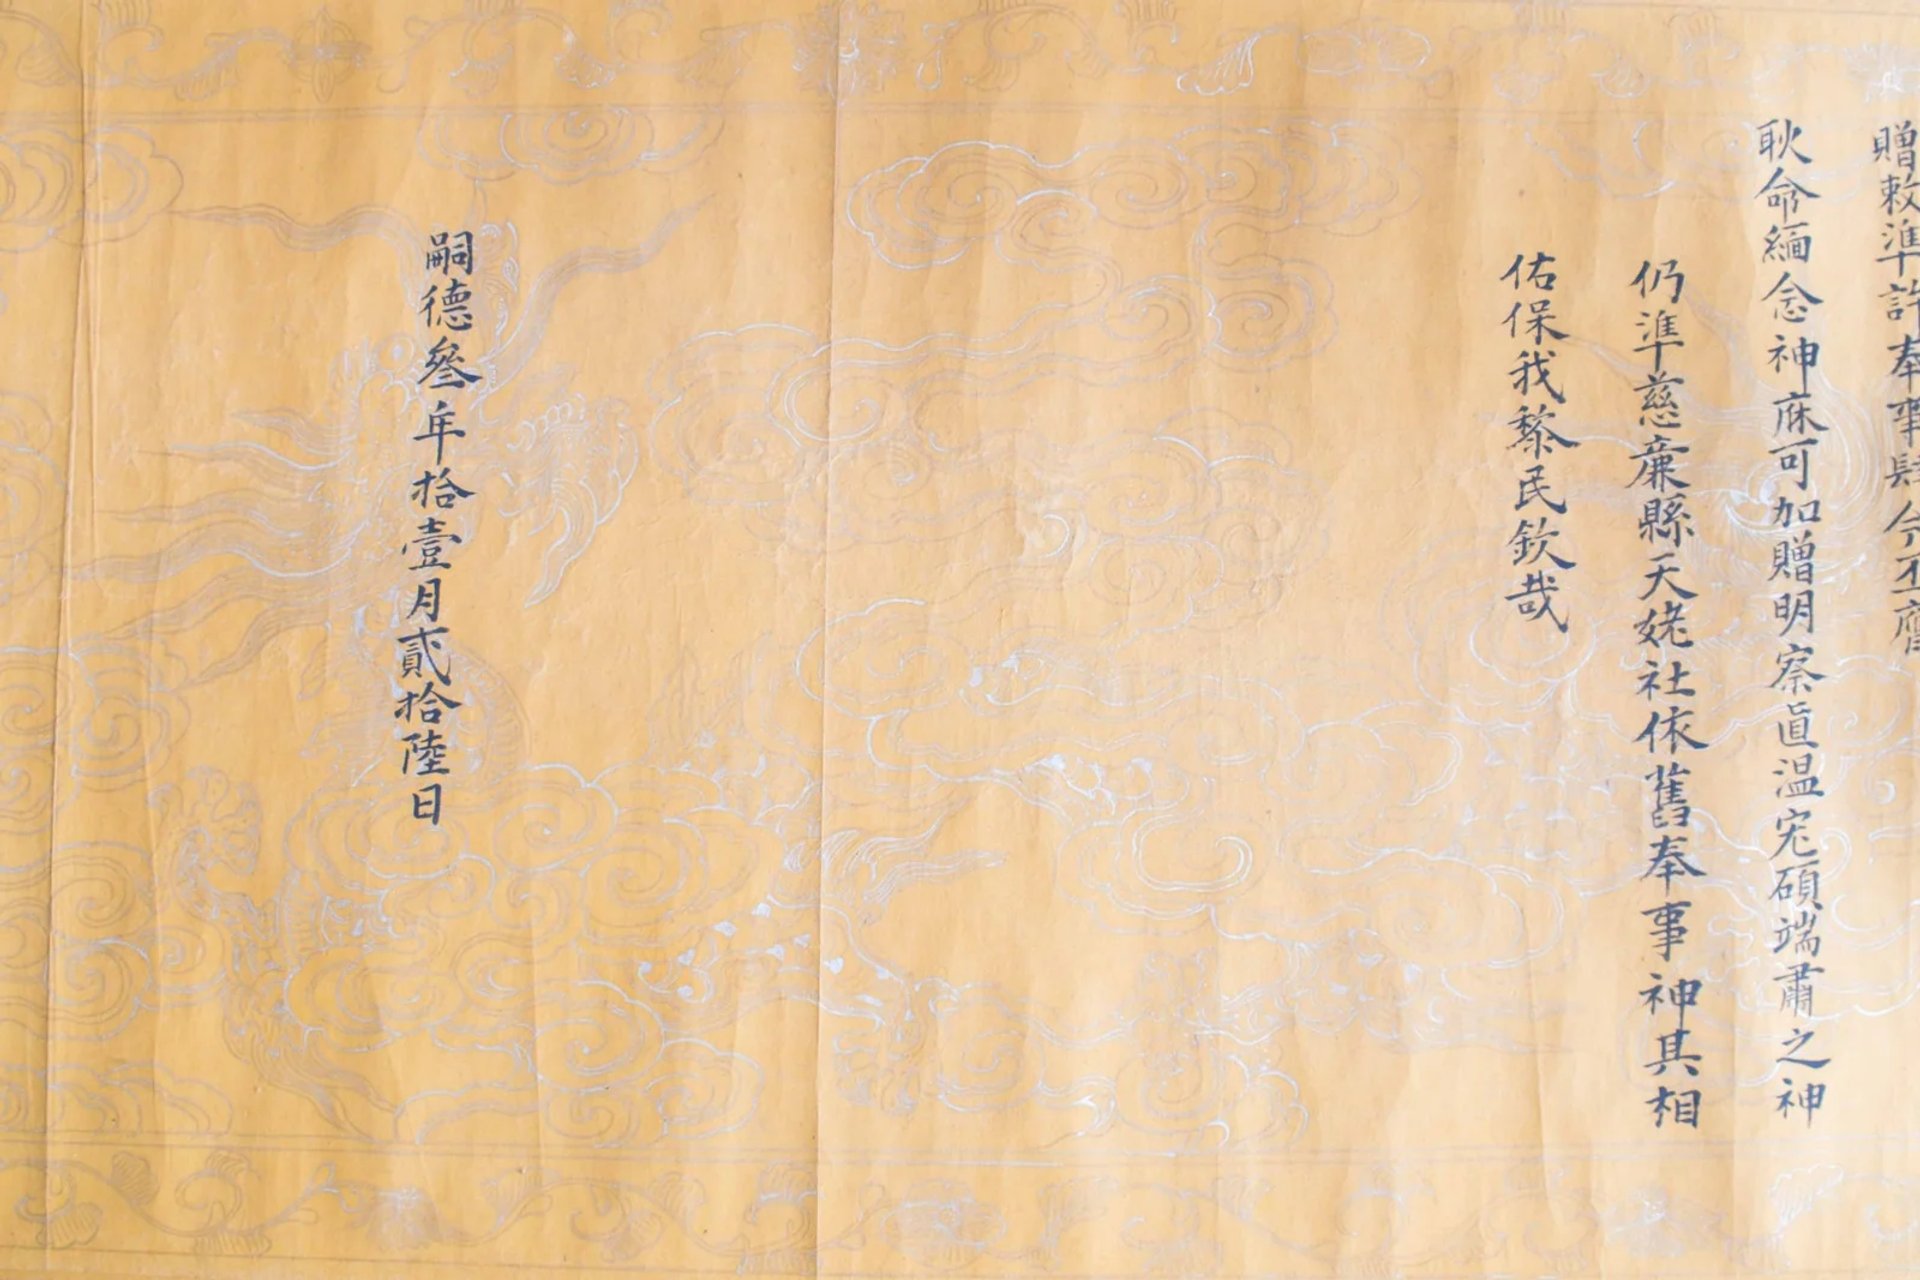 贈敕準許奉事肆今丕膺
耿命緬念神庥可加贈明察眞温宛碩端肅之神
仍準慈廉縣天姥社依舊奉事神其相
佑保我黎民欽哉
嗣德叄年拾壹月貳拾陸日